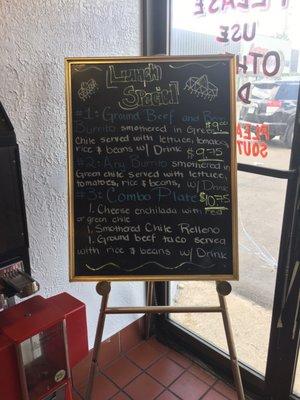 Lunch
Special
#1: Ground Beef and Bean
Burrito smothered in Green
Chile served with lettuce, tomato,
rice & beans w/ Drink $9.75
#2: Any Burrito smothered in
Green chile served with lettuce,
tomatoes, rice & beans, w/ Drink
#3: Combo Plate $10.75
1. Cheese enchilada with red
or green chile
1. Smothered Chile Relleno
1. Ground beef taco served
with rice & beans w/ Drink
PLEASE
USE
OTH
D
PLEA
SOUT